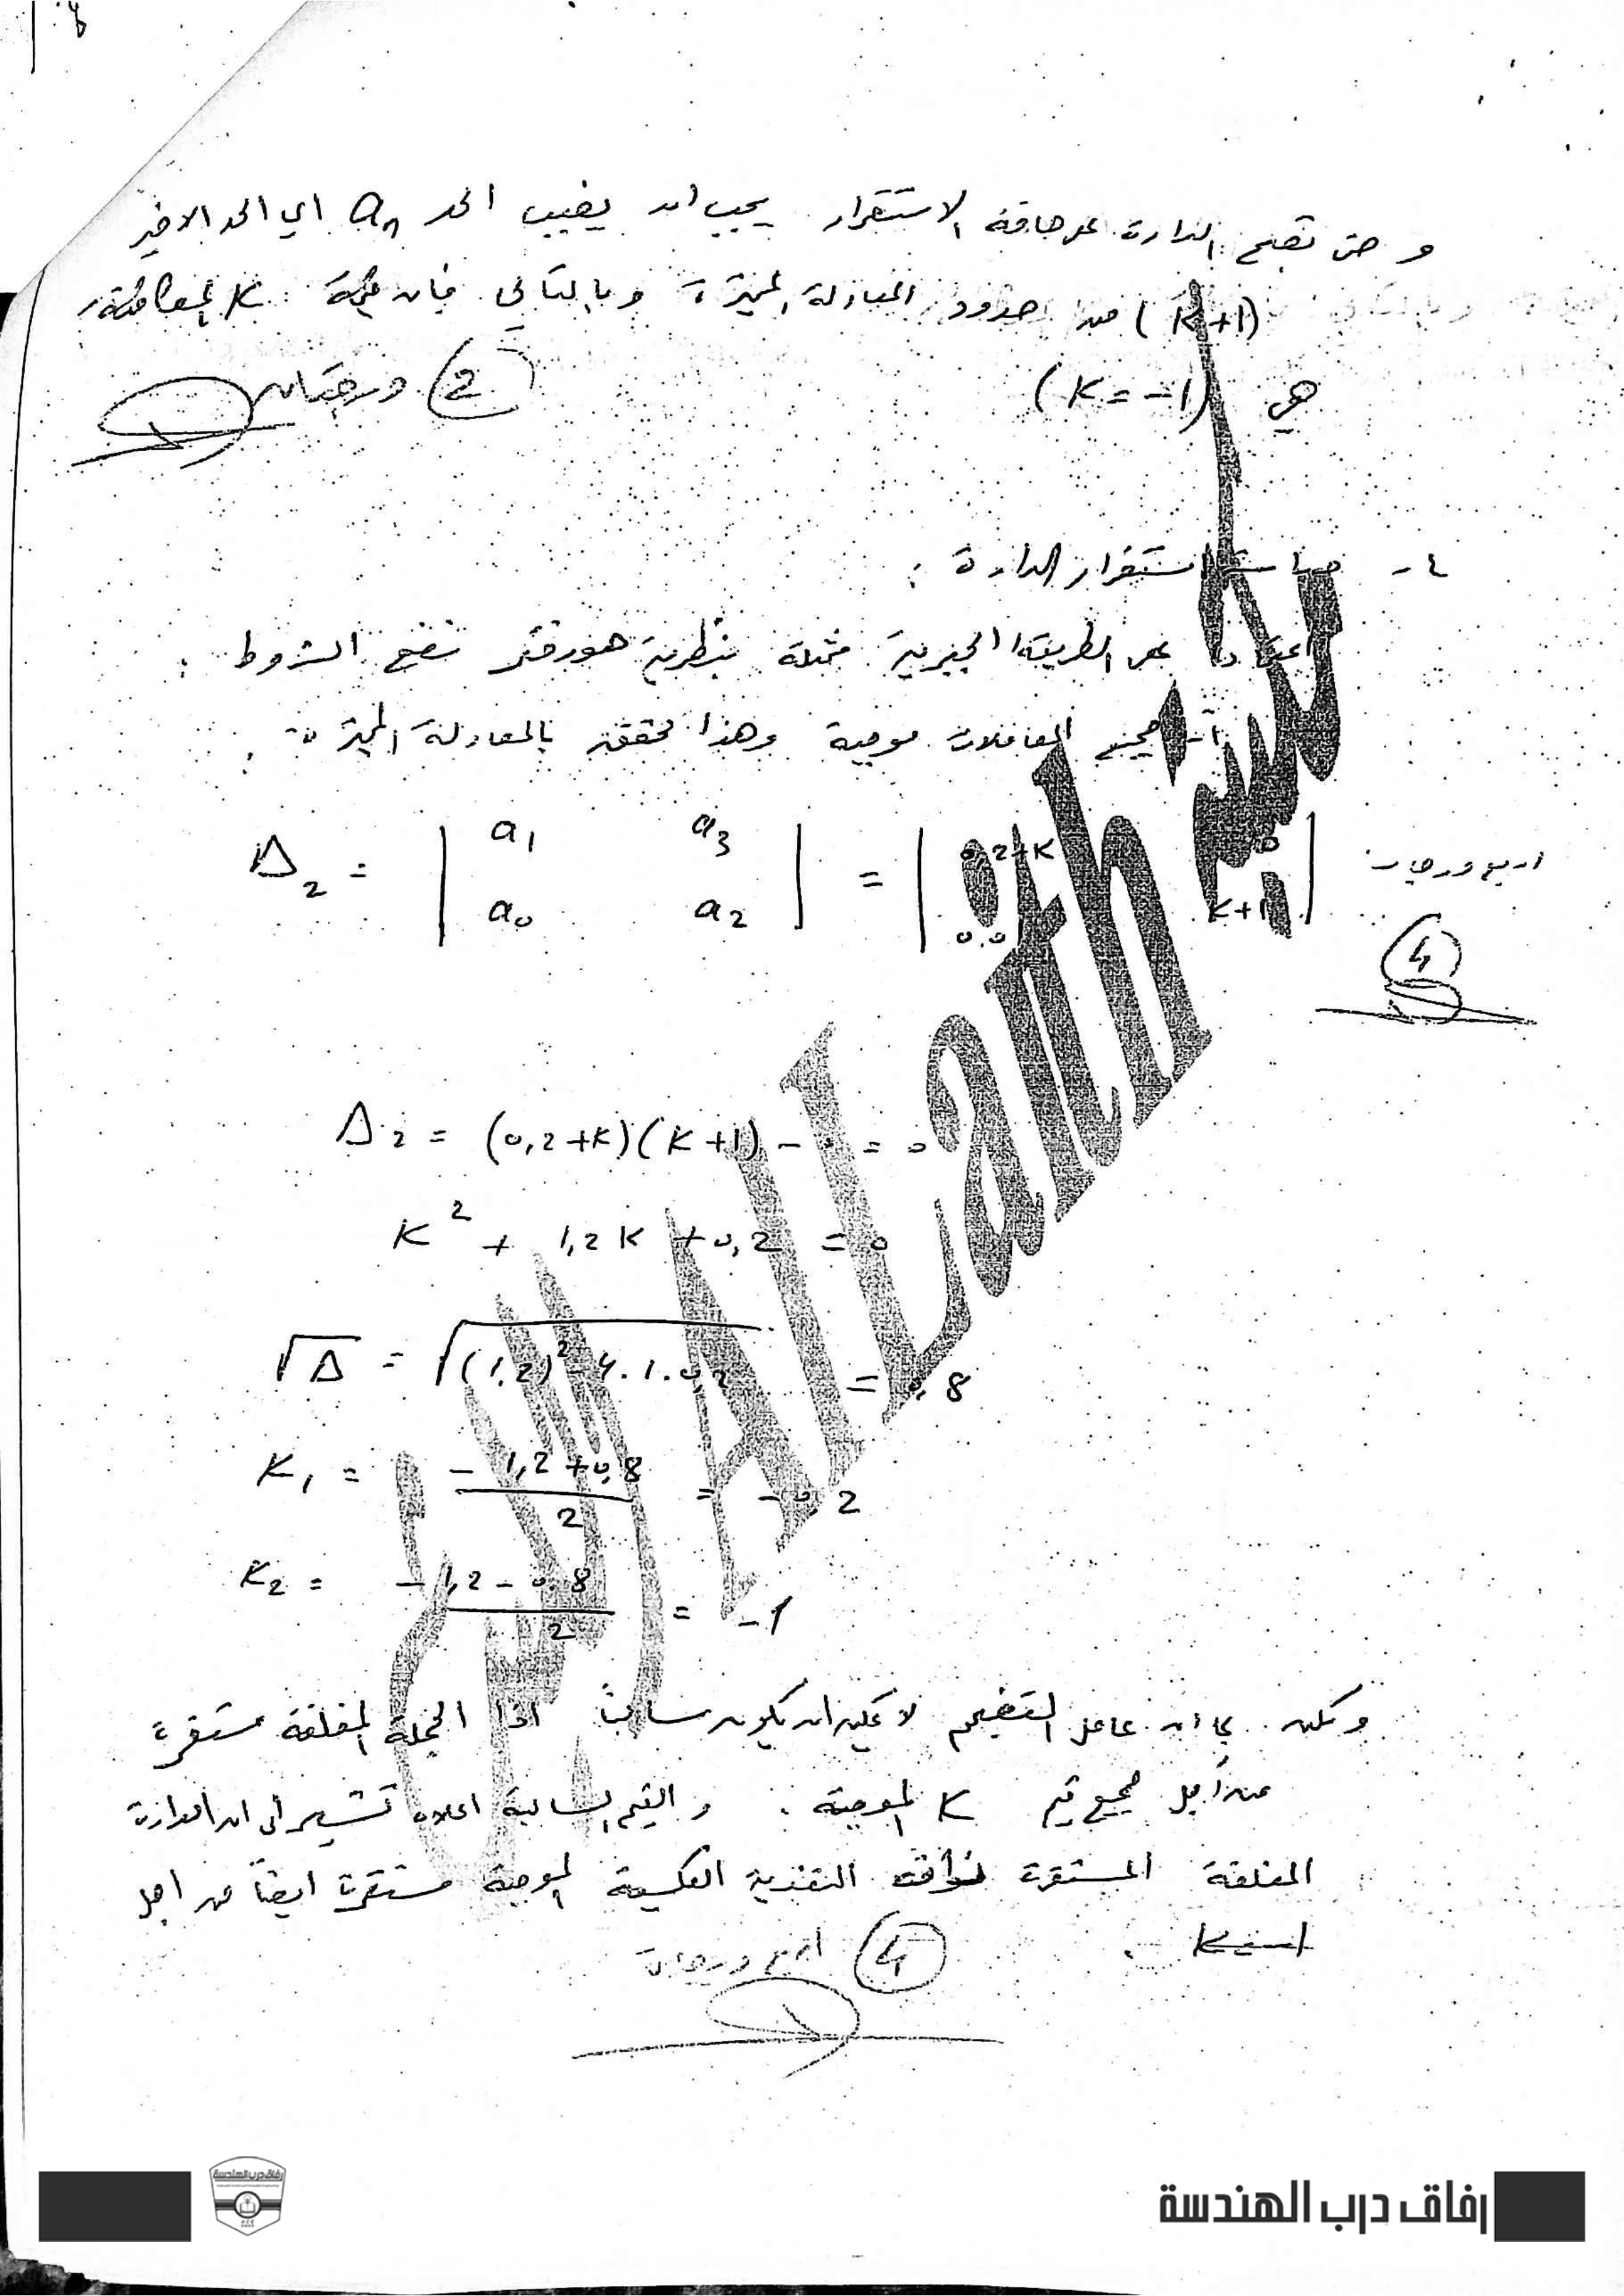 وحتى تصبح الدارة على حافة الاستقرار يجب ان يغيب الحد an اي الحد الاخير
(K+1) من حدود المعادلة المميزة وبالتالي فان قيمة K
هي (K = -1)
2 درجتان
استقرار الدارة :
اعتمادا على الطريقة الجبرية ممثلة بنظرية هورفتز نضع الشروط :
جميع المعاملات موجبة وهذا محقق بالمعادلة المميزة .
Δ2 = | a1 a3 | = | 0,2+K 0 |
| a0 a2 | | 0.01 K+1 |
اربع درجات
4
Δ2 = (0,2+K)(K+1) - 0 = 0
K² + 1,2K + 0,2 = 0
√Δ = √(1,2)² - 4.1.0,2 = 0,8
K1 = -1,2+0,8 / 2 = -0,2
K2 = -1,2-0,8 / 2 = -1
ولكن بما ان عامل التضخيم لا يمكن ان يكون سالباً اذا الجملة المغلقة مستقرة
من أجل جميع قيم K الموجبة . والقيم السالبة اعلاه تشير الى ان الدارة
المغلقة المستقرة التغذية العكسية الموجبة مستقرة ايضاً من اجل
4 اربع درجات
ALLaith
رفاق درب الهندسة